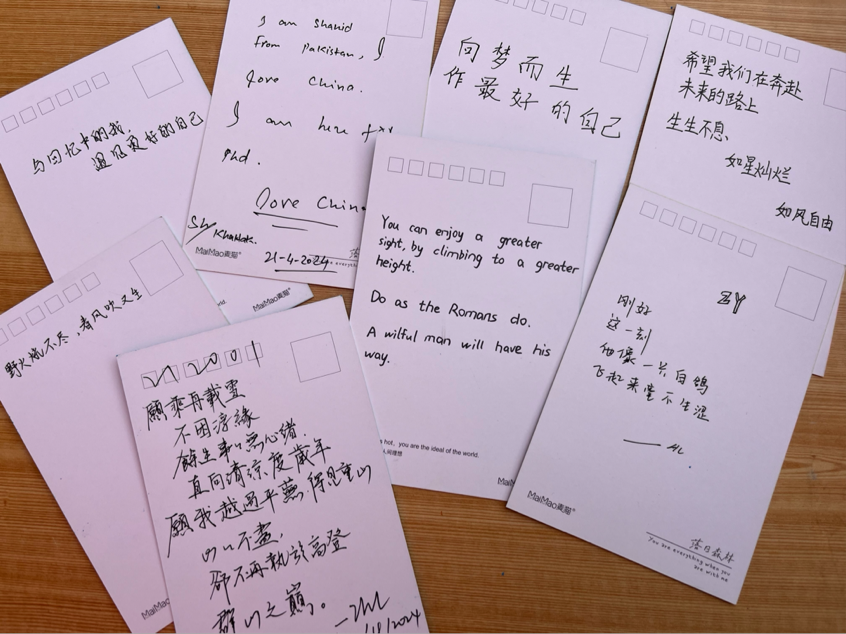 与回忆中的我,
遇见更好的自己
MaiMao麦猫
I am Shahid
From Pakistan, I
love China.
I am here for
phd.
love China
Sh/Khattak.
21-4-2024
MaiMao麦猫
向梦而生
作最好的自己
希望我们在奔赴
未来的路上
生生不息、
如星灿烂
如风自由
野火烧不尽,春风吹又生
MaiMao
21 2001
願乘再載雪
不困浮緣
餘生事以無心緒.
直向清涼度歲年
願我越過平蕪.得見重山
山山不盡,
卻不再執於高登
群山之巔。
/2024
You can enjoy a greater
sight, by climbing to a greater
height.
Do as the Romans do.
A wilful man will have his
way.
hot, you are the ideal of the world.
人间理想
ZY
刚好
这一刻
他像一只白鸽
飞起来毫不生涩
MaiMao麦猫
落日森林
You are everything when you
are with me